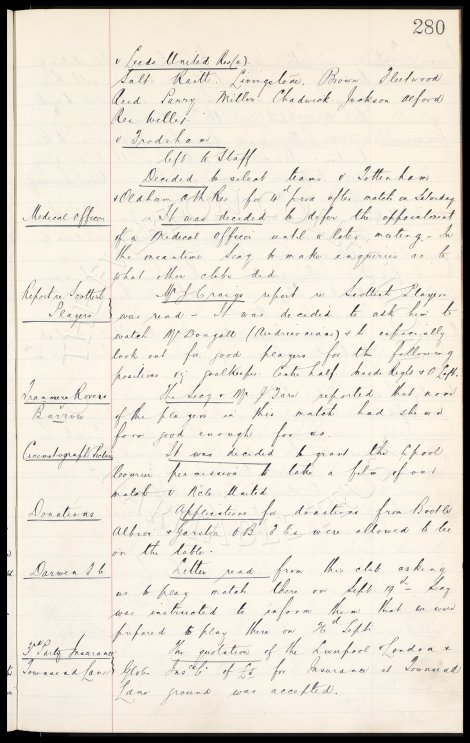 280
v Leeds United Res (a)
Salt Raitt. Livingstone. Brown Fleetwood
Reid. Parry Miller Chadwick Jackson Alford
Res Weller.
v Frodsham
left to Staff
Decided to select teams v Tottenham
& Oldham Ath Res for 16th prox after match on Saturday
Medical Officer
It was decided to defer the appointment
of a Medical Officer until a later meeting - In
the meantime Secy to make enquiries as to
what other clubs did
Report re Scottish Players
Mr J Craige report re Scottish Players
was read - It was decided to ask him to
watch McDougall (Airdrieonians) & to especially
look out for good players for the following
positions viz goalkeeper Centre half Inside Right & O Left.
Tranmere Rovers v Barrow
The Secy & Mr J Fare reported that none
of the players in this match had shewn
form good enough for us.
Cinematograph
It was decided to grant the Lpool
Courier permission to take a film of our
match v N'cle United
Donations
Applications for donations from Bootle
Albion & Garston C B F Cs were allowed to lie
on the table.
Darwen F C
Letter read from this club asking
us to play match there on Sept 19th - Secy
was instructed to inform them that we were
prepared to play there on 16th Sept.
3rd Party Insurance Townsend Lane
The quotation of the Liverpool & London &
Globe Ins Co of for Insurance at Townsend
Lane ground was accepted.